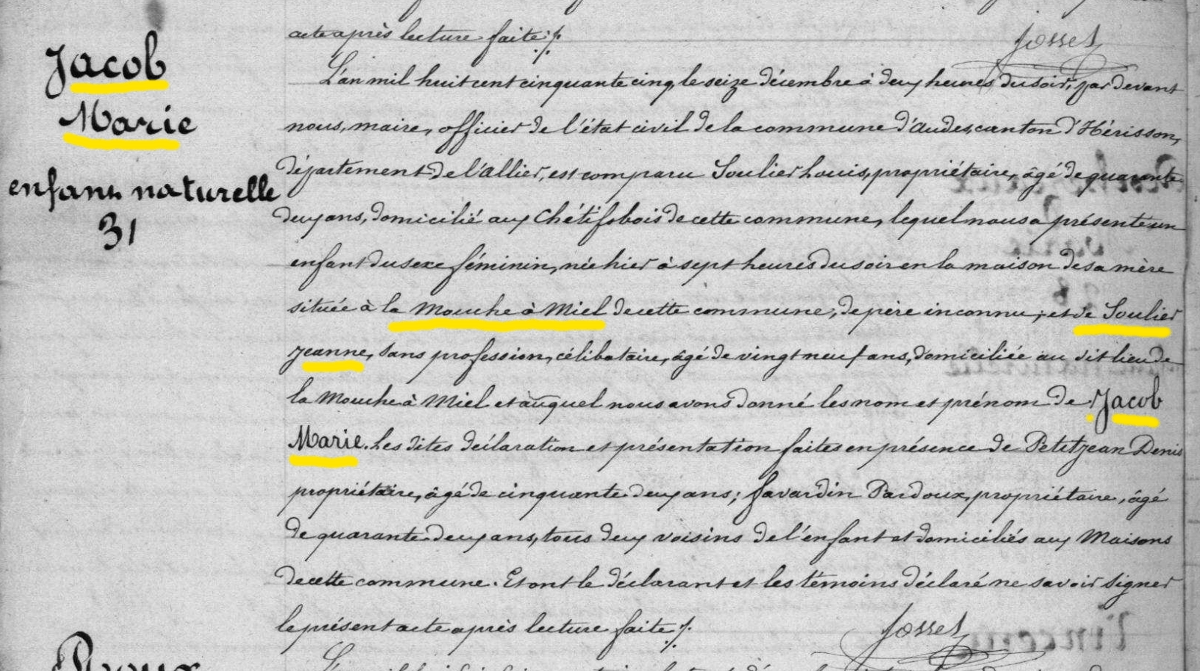 Jacob
Marie
enfant naturelle
31
acte après lecture faite ./.
Josset
L'an mil huit cent cinquante cinq le seize décembre à deux heures du soir, par devant
nous, maire, officier de l'état civil de la commune d'Audes canton d'Hérisson,
département de l'Allier, est comparu Soulier Louis, propriétaire, âgé de quarante
deux ans, domicilié aux Chétifs bois de cette commune, lequel nous a présenté un
enfant du sexe féminin, née hier à sept heures du soir en la maison de sa mère
située à la Mouche à Miel de cette commune, de père inconnu, et de Soulier
Jeanne, sans profession, célibataire, âgé de vingt neuf ans, domiciliée au dit lieu de
la Mouche à Miel et auquel nous avons donné les nom et prénom de Jacob
Marie. Les dites déclaration et présentation faites en présence de Petitjean Denis
propriétaire, âgé de cinquante deux ans; Favardin Pardoux, propriétaire, âgé
de quarante deux ans, tous deux voisins de l'enfant et domiciliés aux Maisons
de cette commune. Et ont le déclarant et les témoins déclaré ne savoir signer
le présent acte après lecture faite ./.
Josset